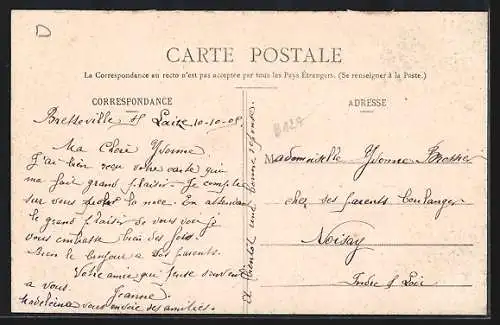 D
CARTE POSTALE
La Correspondance au recto n'est pas acceptée par tous les Pays Étrangers. (Se renseigner à la Poste.)
CORRESPONDANCE
Bretteville s/ Laize 10-10-08
Ma Chère Yvonne
J'ai bien reçu votre carte qui
me fait grand plaisir. Je compte
sur vous pour la noce. En attendant
le grand plaisir de vous voir je
vous embrasse bien des fois.
Bien le bonjour à ses parents.
Votre amie qui pense souvent
a vous. Jeanne.
Madeleine vous envoie ses amitiés.
et bonne réponse
ADRESSE
Mademoiselle Yvonne
chez ses parents boulanger
Noisay
Indre s/ Loir